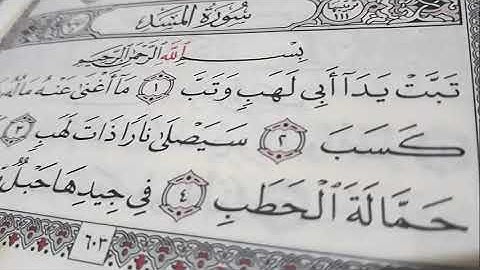 سُورَةُ المَسَدِ
١١١
بِسْمِ ٱللَّهِ ٱلرَّحْمَٰنِ ٱلرَّحِيمِ
تَبَّتْ يَدَآ أَبِى لَهَبٍ وَتَبَّ ١ مَآ أَغْنَىٰ عَنْهُ
كَسَبَ ٢ سَيَصْلَىٰ نَارًا ذَاتَ لَهَبٍ ٣
حَمَّالَةَ ٱلْحَطَبِ ٤ فِى جِيدِهَا حَبْلٌ
٦٠٣